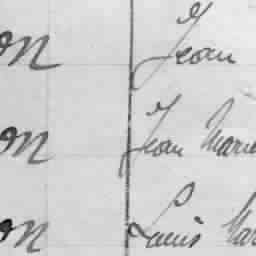 on Jean
on Jean Marie
on Louis Mar